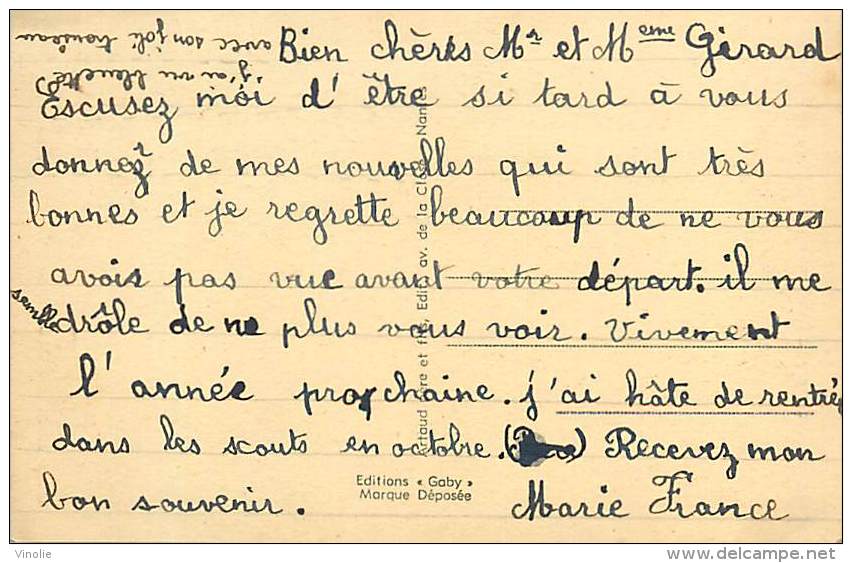 Bien chères Mr et Meme Girard
Escusez moi d'être si tard à vous
donnez de mes nouvelles qui sont très
bonnes et je regrette beaucoup de ne vous
avois pas vue avant votre départ. il me
semble drôle de ne plus vous voir. Vivement
l'année prochaine. j'ai hâte de rentré
dans les scouts en octobre. Recevez mon
bon souvenir. Marie France
j'ai vu
avec son joli trousseau
Editions « Gaby »
Marque Déposée
Artaud père et fils, Edit., av. de la Close, Nantes
Vinolie
delcampe.net